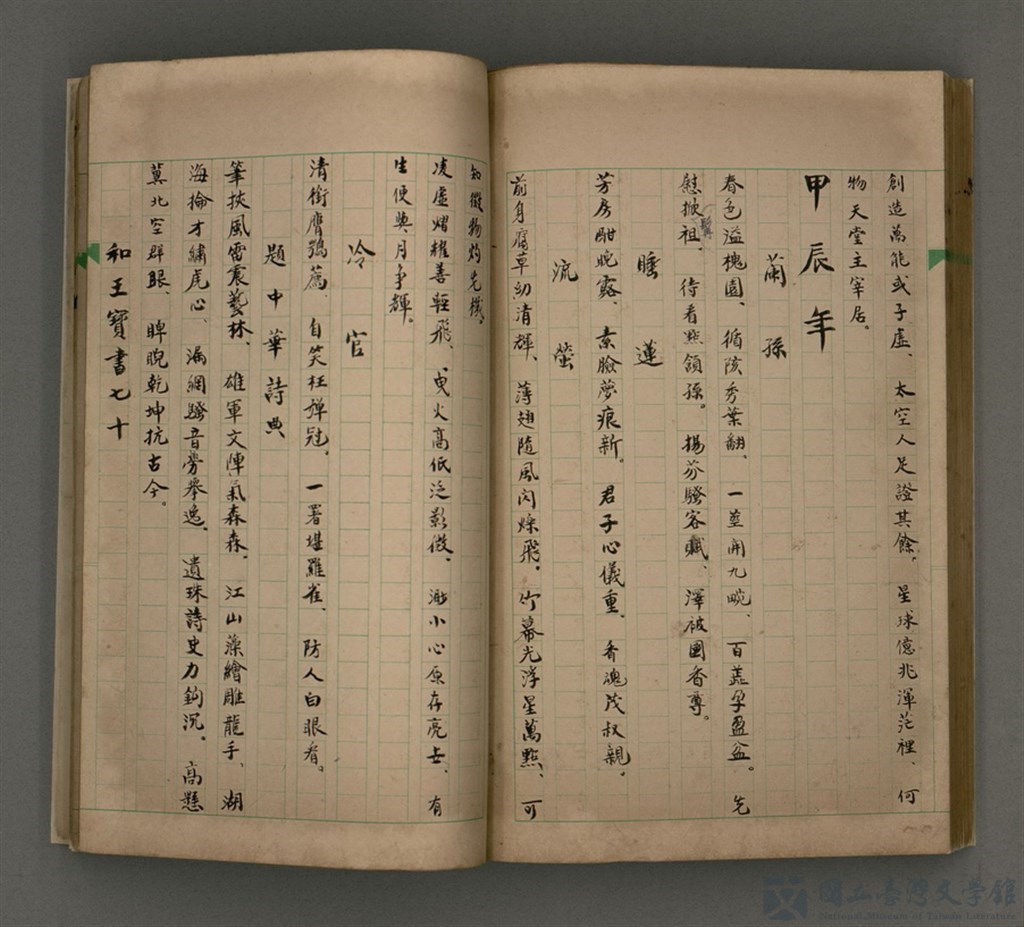 創造萬能或子虛、太空人足證其餘。星球億兆渾茫裡、何
物天堂主宰居。
甲辰年
蘭孫
春色溢槐園、循陔秀葉翻。一莖開九畹、百蕊孕盈盆。先
慰掀髯祖、待看點頷孫。揚芬騷客賦、澤被國香尊。
睡蓮
芳房酣晚露、素臉夢痕新。君子心儀重、香魂茂叔親。
流螢
前身腐草幼清輝、薄翅隨風閃爍飛。竹幕光浮星萬點、可
知微物灼先機。
凌虛熠耀善輕飛、曳火高低泛影微。渺小心原存亮士、有
生便與月爭輝。
冷官
清銜膺鶚薦、自笑枉彈冠。一署堪羅雀、防人白眼看。
題中華詩典
筆挾風雷震藝林、雄軍文陣氣森森。江山藻繪雕龍手、湖
海掄才繡虎心。漏網騷音旁搴逸、遺珠詩史力鈎沉。高懸
冀北空群眼、睥睨乾坤抗古今。
和王寶書七十
國立臺灣文學館
National Museum of Taiwan Literature